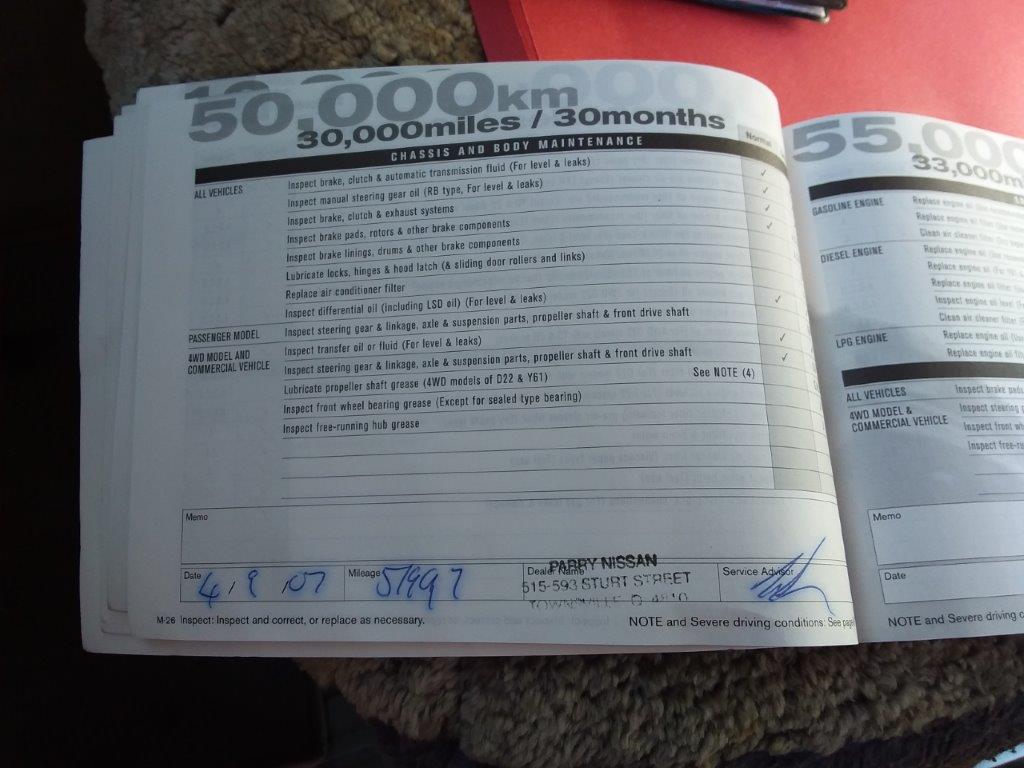 50,000km
30,000miles / 30months
CHASSIS AND BODY MAINTENANCE
Normal
ALL VEHICLES
Inspect brake, clutch & automatic transmission fluid (For level & leaks)
Inspect manual steering gear oil (RB type, For level & leaks)
Inspect brake, clutch & exhaust systems
Inspect brake pads, rotors & other brake components
Inspect brake linings, drums & other brake components
Lubricate locks, hinges & hood latch (& sliding door rollers and links)
Replace air conditioner filter
Inspect differential oil (including LSD oil) (For level & leaks)
PASSENGER MODEL
Inspect steering gear & linkage, axle & suspension parts, propeller shaft & front drive shaft
4WD MODEL AND
COMMERCIAL VEHICLE
Inspect transfer oil or fluid (For level & leaks)
Inspect steering gear & linkage, axle & suspension parts, propeller shaft & front drive shaft
Lubricate propeller shaft grease (4WD models of D22 & Y61) See NOTE (4)
Inspect front wheel bearing grease (Except for sealed type bearing)
Inspect free-running hub grease
Memo
Date 4/9/07
Mileage 51997
Dealer Name
PARRY NISSAN
515-593 STURT STREET
TOWNSVILLE Q 4810
Service Advisor
M-26 Inspect: Inspect and correct, or replace as necessary.
NOTE and Severe driving conditions: See page
55,000
33,000m
GASOLINE ENGINE
Replace engine oil
Replace engine oil filter
Clean air cleaner filter
DIESEL ENGINE
Replace engine oil
Replace engine oil
Replace engine oil filter
Inspect engine oil level
Clean air cleaner filter
LPG ENGINE
Replace engine oil
Replace engine oil
ALL VEHICLES
Inspect brake pads
4WD MODEL &
COMMERCIAL VEHICLE
Inspect steering
Inspect front
Inspect
Memo
Date
NOTE and Severe driving co